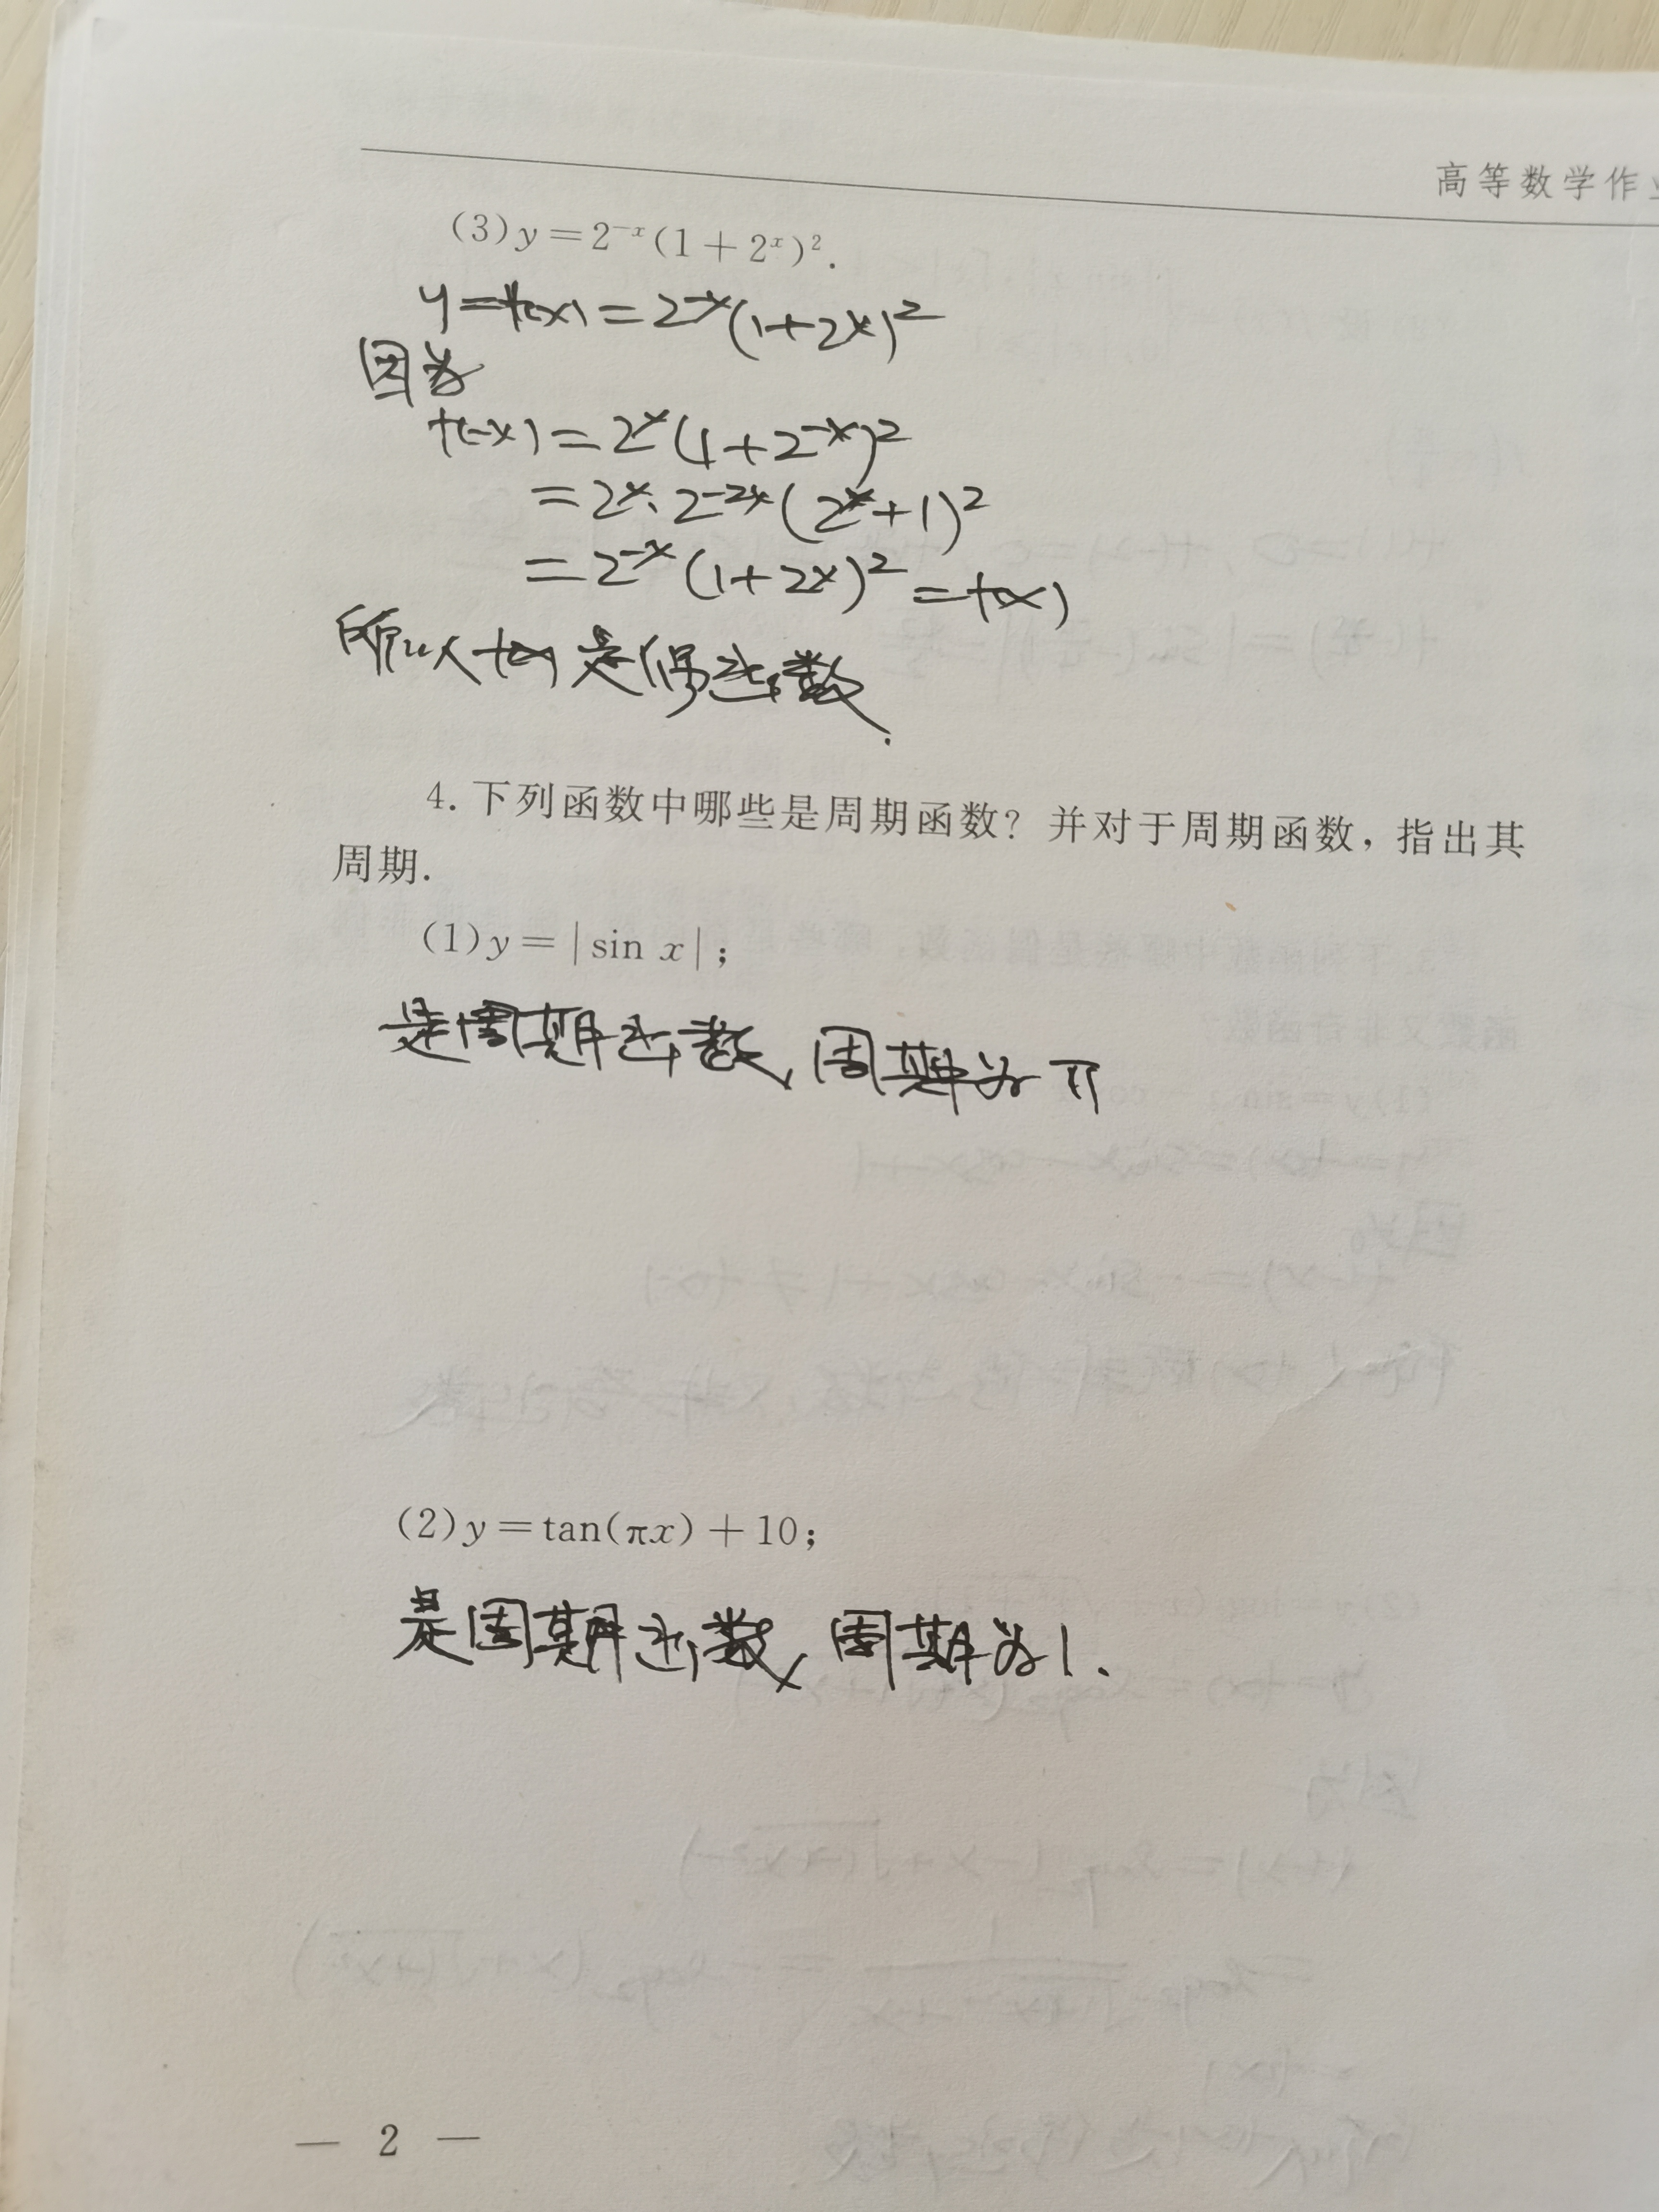 高等数学作
(3) y=2⁻ˣ(1+2ˣ)².
y=f(x)=2⁻ˣ(1+2ˣ)²
因为
f(-x)=2ˣ(1+2⁻ˣ)²
=2ˣ·2⁻²ˣ(2ˣ+1)²
=2⁻ˣ(1+2ˣ)²=f(x)
所以f(x)是偶函数.
4. 下列函数中哪些是周期函数? 并对于周期函数, 指出其
周期.
(1) y=|sin x|;
是周期函数, 周期为π
(2) y=tan(πx)+10;
是周期函数, 周期为1.
— 2 —